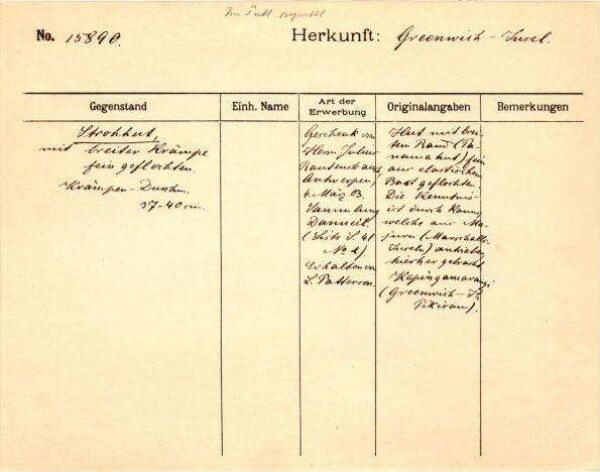 Im Pult
No. 15890.
Herkunft: Greenwich-Insel.
Gegenstand
Einh. Name
Art der Erwerbung
Originalangaben
Bemerkungen
Strohhut,
mit breiter Krämpe
fein geflochten.
Krämpen-Durchm.
37-40 cm.
Geschenk von
Herrn Julius
Rautenstrauch
Antwerpen,
4. März
Sammlung
Danneil.
(Liste S. 41
No 2)
Erhalten von
L. Patterson.
Hut mit brei-
ten Rand (Pa-
namahut) fein
aus elastischem
Bast geflochten.
Die Kenntnis
ist durch Kanus,
welche aus Ma-
juru (Marschall-
Inseln) antrieben,
hierher gebracht.
Kapingamarangi
(Greenwich-
Pikiram).